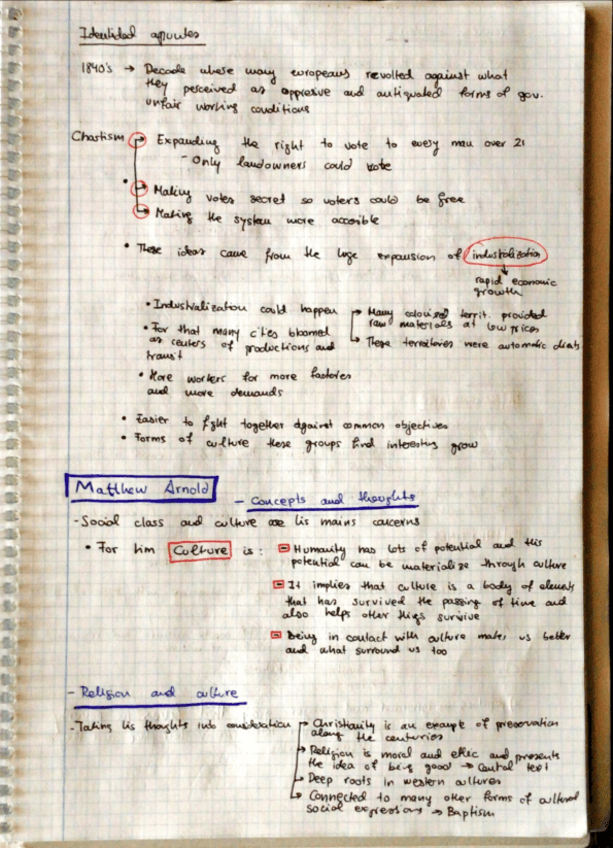 Identidad apuntes
1840's → Decade where many europeans revolted against what
they perceived as oppresive and antiquated forms of gov.
unfair working conditions
Chartism → Expanding the right to vote to every man over 21
- Only landowners could vote
• → Making votes secret so voters could be free
→ Making the system more accesible
• These ideas came from the huge expansion of industralization
rapid economic
growth
• Industralization could happen → Many colonized territ. provided
raw materials at low prices
→ These territories were automatic clients
• For that many cities bloomed
as centers of productions and
transit
• More workers for more factories
and more demands
• Easier to fight together against common objectives
• Forms of culture these groups find interesting grow
Matthew Arnold
- Concepts and thoughts
- Social class and culture are his mains concerns
• For him Culture is: Humanity has lots of potential and this
potential can be materialize through culture
It implies that culture is a body of elements
that has survived the passing of time and
also helps other things survive
Being in contact with culture makes us better
and what surround us too
- Religion and culture
- Taking his thoughts into consideration → Christianity is an example of preservation
along the centuries
→ Religion is moral and ethic and presents
the idea of being good → text
→ Deep roots in western cultures
→ Connected to many other forms of cultural
social expressions → Baptism